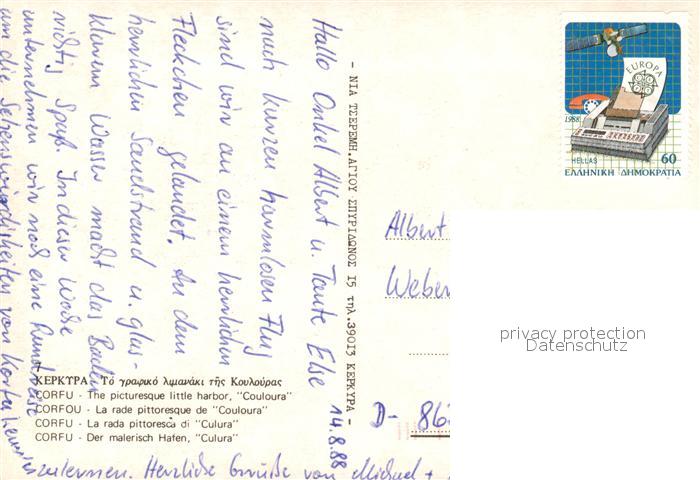 Hallo Onkel Albert u. Tante Else
14.8.88
nach kurzen harmlosen Flug
sind wir an einem herrlichen
Fleckchen gelandet. An dem
herrlichen Sandstrand u. glas-
klarem Wasser macht das Baden
richtig Spaß. In dieser Woche
unternehmen wir noch eine Rundreise
um die Sehenswürdigkeiten von Korfu kennen
zulernen. Herzliche Grüße von Michael +
- ΝΙΑ ΤΣΕΡΕΜΗ, ΑΓΙΟΥ ΣΠΥΡΙΔΩΝΟΣ 15 τηλ.39013 ΚΕΡΚΥΡΑ -
ΚΕΡΚΥΡΑ - Τό γραφικό λιμανάκι τῆς Κουλούρας
CORFU - The picturesque little harbor, "Couloura"
CORFOU - La rade pittoresque de "Couloura"
CORFU - La rada pittoresca di "Culura"
CORFU - Der malerisch Hafen, "Culura"
EUROPA
1988
HELLAS 60
ΕΛΛΗΝΙΚΗ ΔΗΜΟΚΡΑΤΙΑ
Albert
Weber
D- 86
privacy protection
Datenschutz